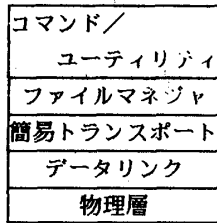 コマンド／
ユーティリティ
ファイルマネジャ
簡易トランスポート
データリンク
物理層